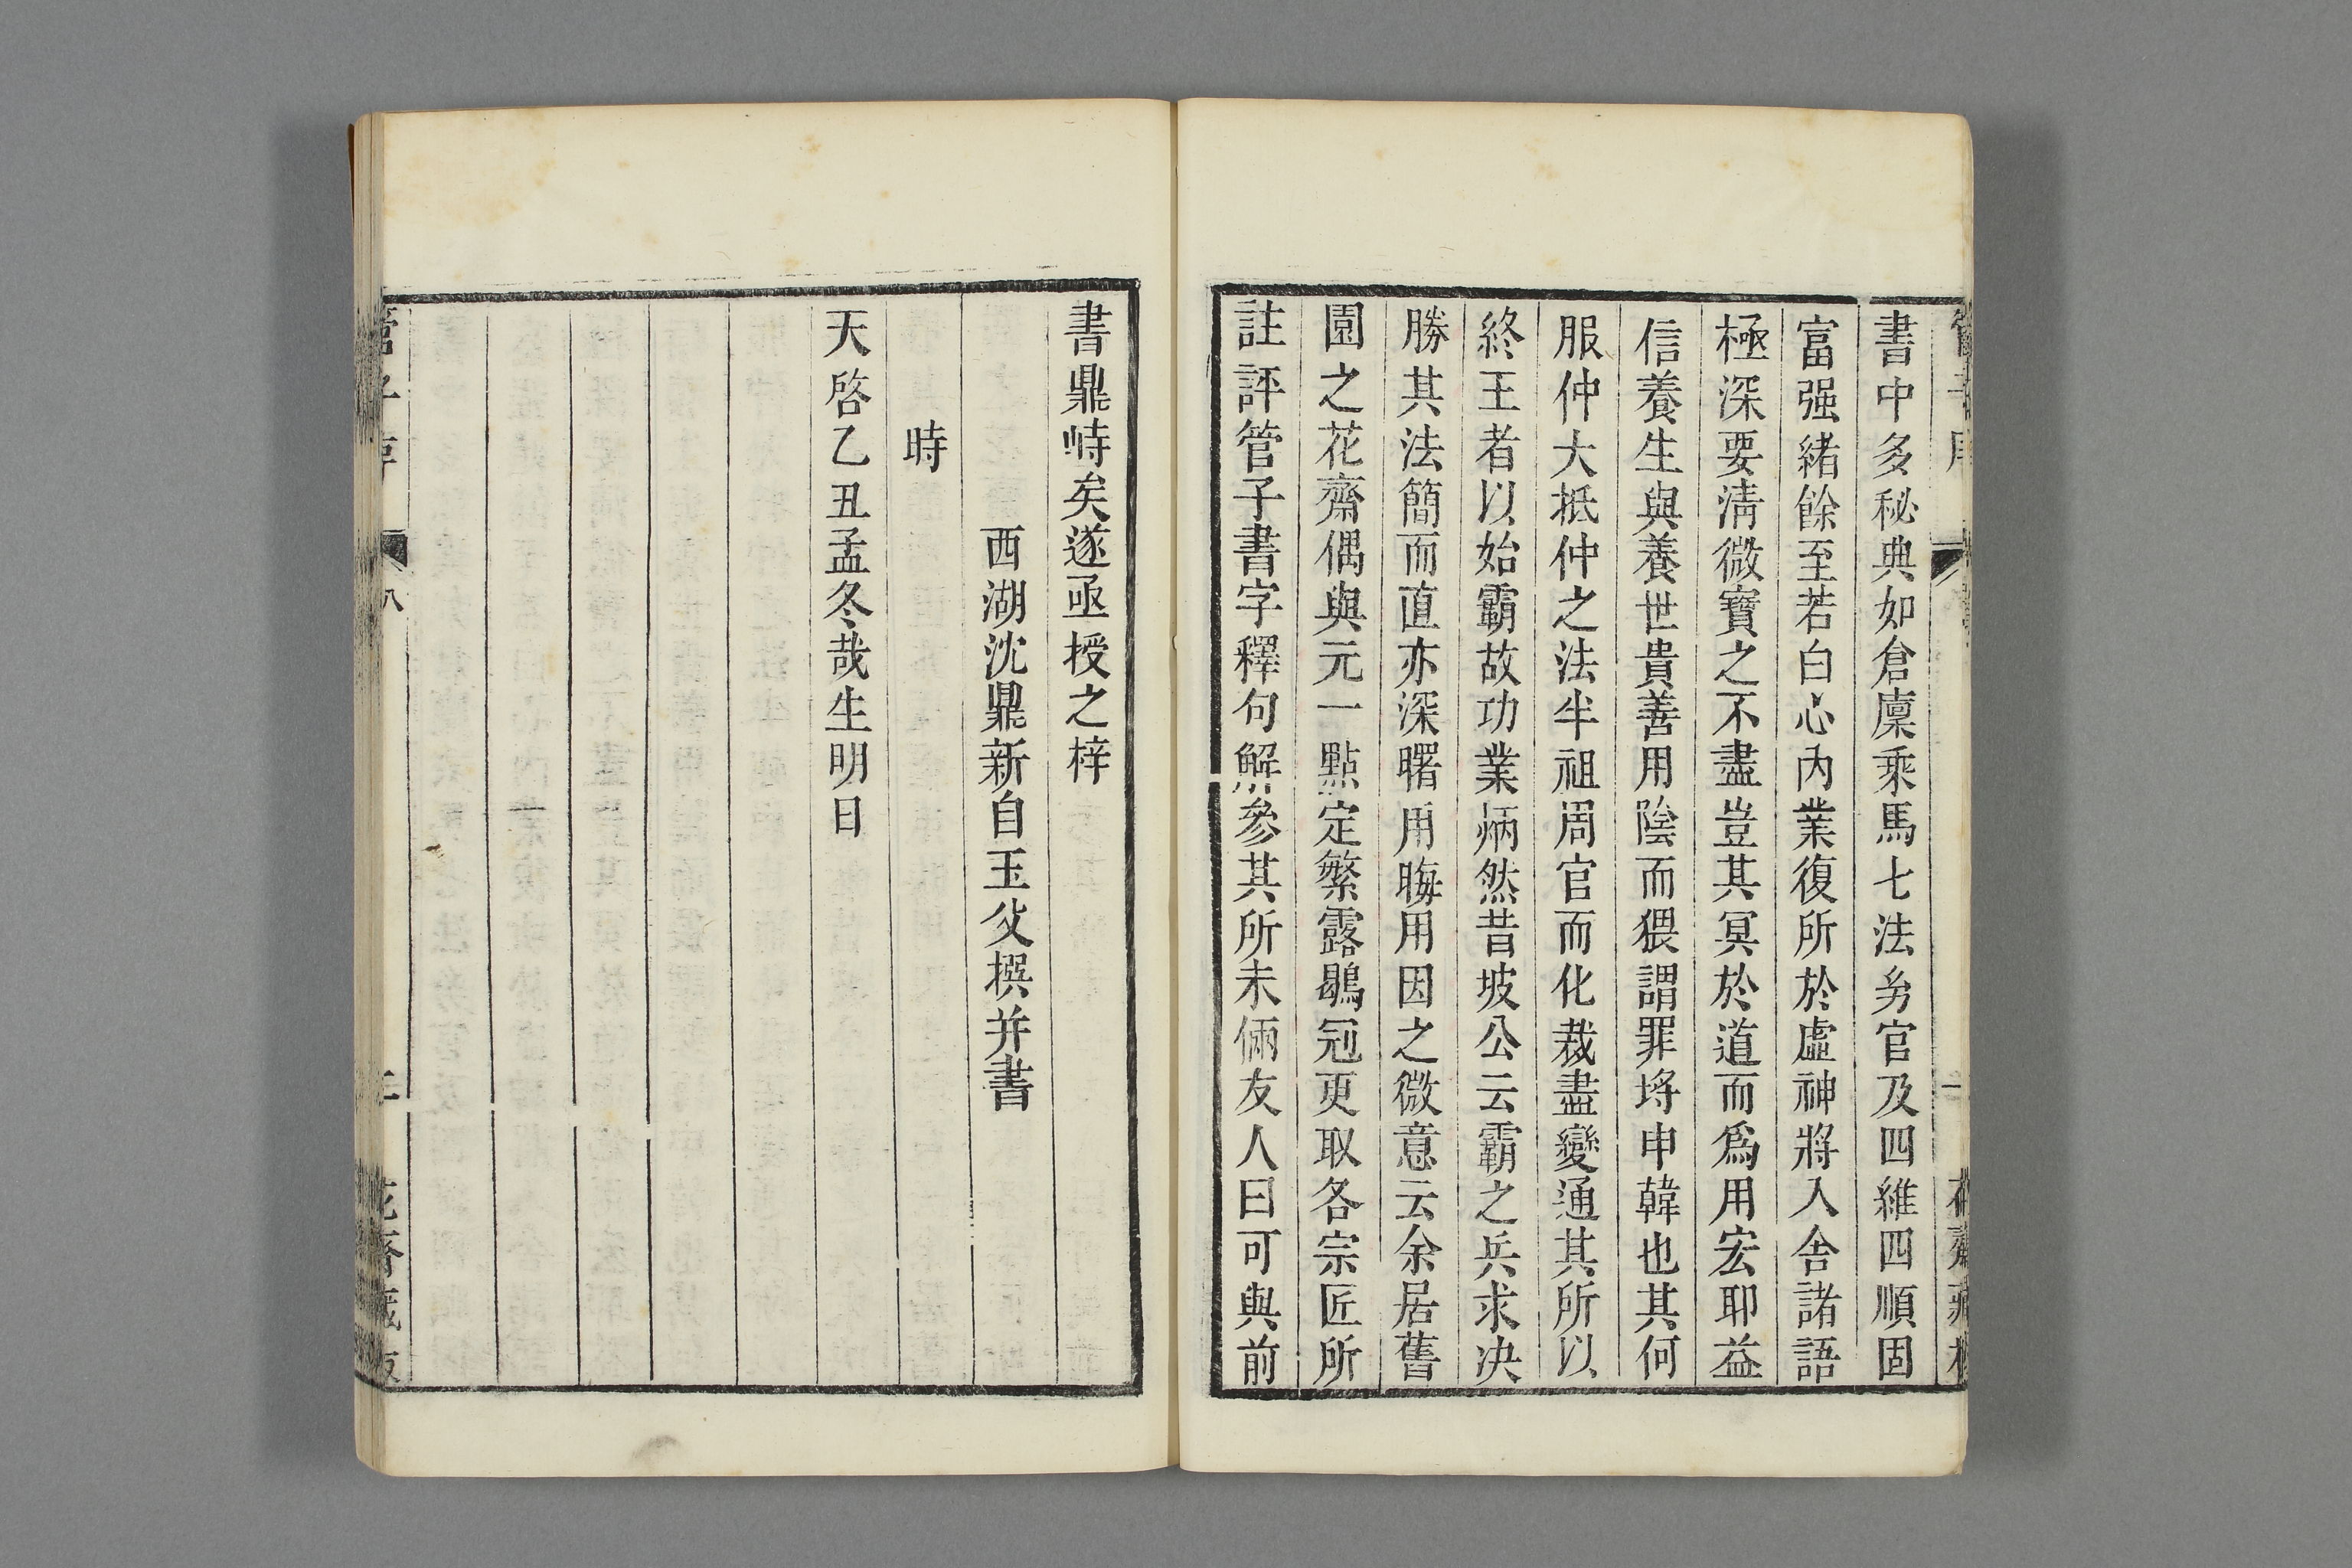 書中多秘典如倉廩乘馬七法㓜官及四維四順固
富强緒餘至若白心內業復所於虛神將入舍諸語
極深要淸微寶之不盡豈其冥於道而爲用宏耶益
信養生與養世貴善用陰而猥謂罪埒申韓也其何
服仲大抵仲之法半祖周官而化裁盡變通其所以
終王者以始霸故功業炳然昔坡公云霸之兵求决
勝其法簡而直亦深曙用晦用因之微意云余居舊
園之花齋偶與元一點定繁露鶡冠更取各宗匠所
註評管子書字釋句解參其所未倆友人曰可與前
書鼎峙矣遂亟授之梓
西湖沈鼎新自玉父撰并書
時
天啓乙丑孟冬哉生明日
管子序
八
花齋藏板